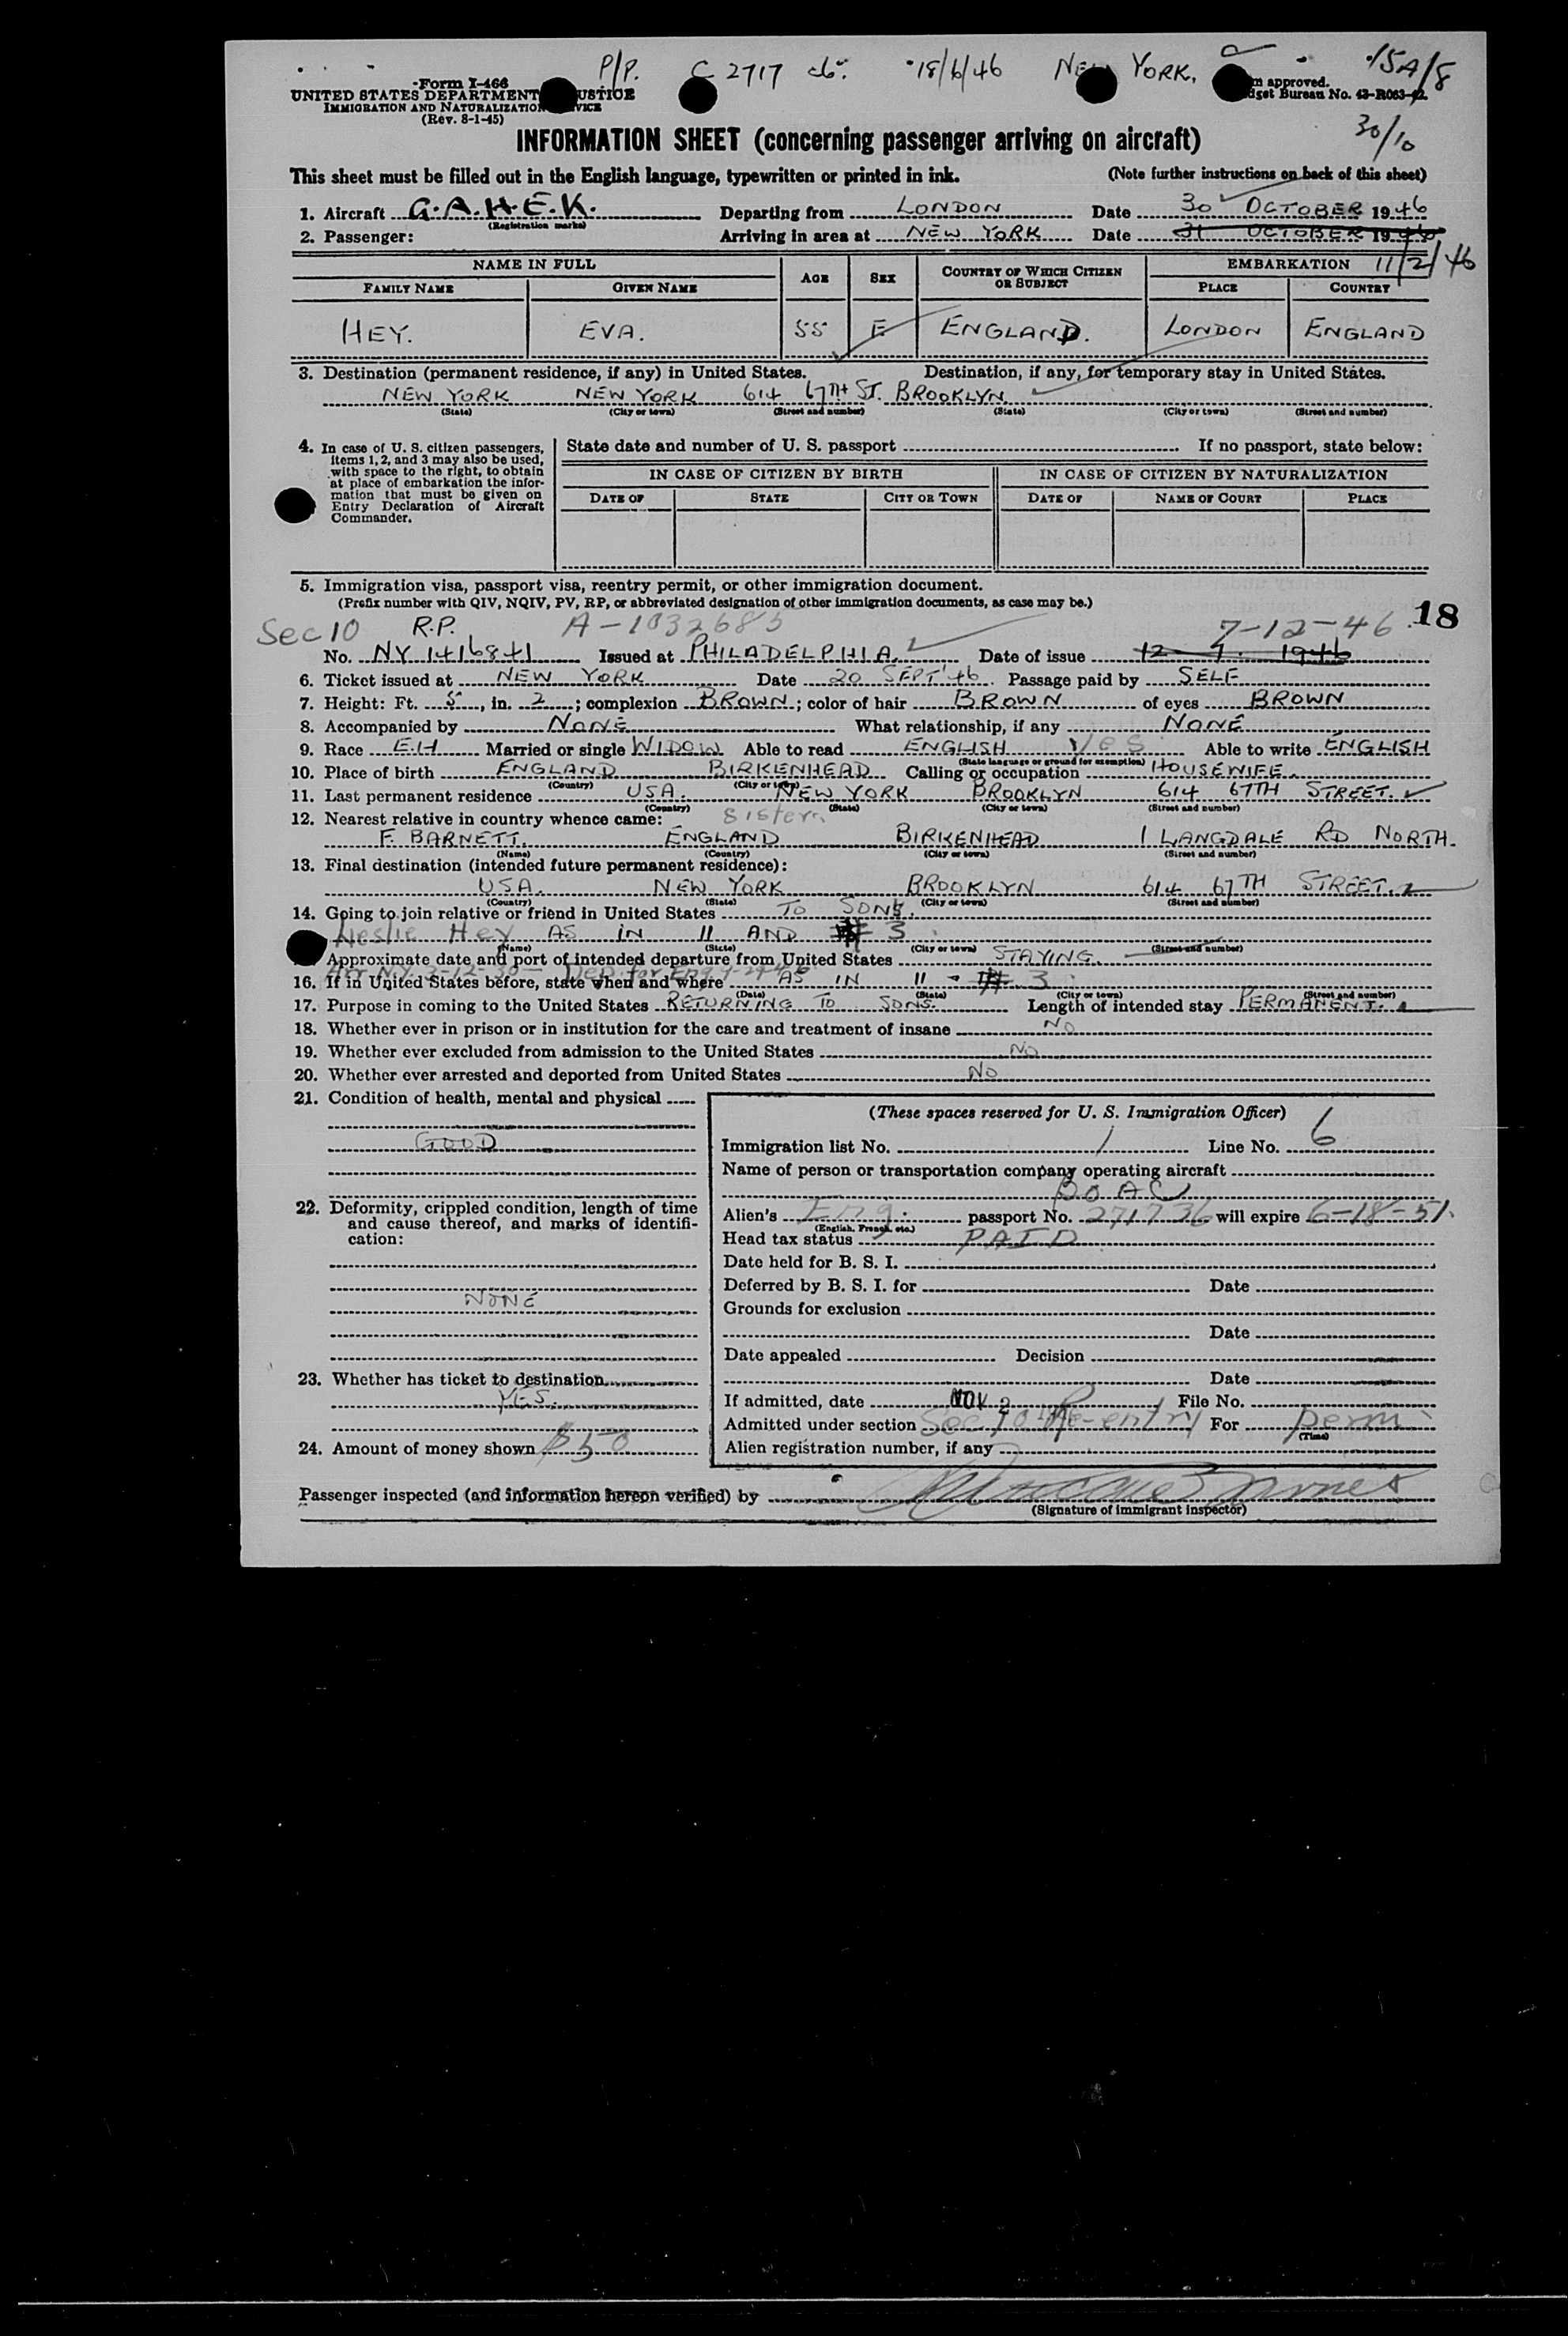 P/P. C 2717 18/6/46 NEW YORK. 15A/8
Form I-466
UNITED STATES DEPARTMENT JUSTICE
IMMIGRATION AND NATURALIZATION SERVICE
(Rev. 8-1-45)
approved.
Budget Bureau No. 43-R063-42.
30/10
INFORMATION SHEET (concerning passenger arriving on aircraft)
This sheet must be filled out in the English language, typewritten or printed in ink. (Note further instructions on back of this sheet)
1. Aircraft G.A.H.E.K. Departing from LONDON Date 30 OCTOBER 1946
(Registration marks)
2. Passenger: Arriving in area at NEW YORK Date 31 OCTOBER 1946
11/2/46
NAME IN FULL AGE SEX COUNTRY OF WHICH CITIZEN OR SUBJECT EMBARKATION
FAMILY NAME GIVEN NAME PLACE COUNTRY
HEY. EVA. 55 F ENGLAND. LONDON ENGLAND
3. Destination (permanent residence, if any) in United States. Destination, if any, for temporary stay in United States.
NEW YORK NEW YORK 614 67TH ST. BROOKLYN
(State) (City or town) (Street and number) (State) (City or town) (Street and number)
4. In case of U. S. citizen passengers, items 1, 2, and 3 may also be used, with space to the right, to obtain at place of embarkation the information that must be given on Entry Declaration of Aircraft Commander.
State date and number of U. S. passport If no passport, state below:
IN CASE OF CITIZEN BY BIRTH IN CASE OF CITIZEN BY NATURALIZATION
DATE OF STATE CITY OR TOWN DATE OF NAME OF COURT PLACE
5. Immigration visa, passport visa, reentry permit, or other immigration document.
(Prefix number with QIV, NQIV, PV, RP, or abbreviated designation of other immigration documents, as case may be.)
18
Sec 10 R.P. A-1032685 7-12-46
No. NY 1416841 Issued at PHILADELPHIA Date of issue 12 7. 1946
6. Ticket issued at NEW YORK Date 20 SEPT '46 Passage paid by SELF
7. Height: Ft. 5, in. 2; complexion BROWN; color of hair BROWN of eyes BROWN
8. Accompanied by NONE What relationship, if any NONE
9. Race EH Married or single WIDOW Able to read ENGLISH Yes Able to write ENGLISH
(State language or ground for exemption)
10. Place of birth ENGLAND BIRKENHEAD Calling or occupation HOUSEWIFE.
(Country) (City or town)
11. Last permanent residence USA. NEW YORK BROOKLYN 614 67TH STREET.
(Country) (State) (City or town) (Street and number)
12. Nearest relative in country whence came: Sister
F. BARNETT. ENGLAND BIRKENHEAD 1 LANGDALE RD NORTH.
(Name) (Country) (City or town) (Street and number)
13. Final destination (intended future permanent residence):
USA. NEW YORK BROOKLYN 614 67TH STREET.
(Country) (State) (City or town) (Street and number)
14. Going to join relative or friend in United States TO SONS.
Leslie Hey AS IN 11 AND 3
(Name) (State) (City or town) (Street and number)
Approximate date and port of intended departure from United States STAYING.
Arr N.Y. 3-12-30 - Dep. for Eng 9-29-46
16. If in United States before, state when and where AS IN 11 - 3
(Date) (State) (City or town) (Street and number)
17. Purpose in coming to the United States RETURNING TO SONS. Length of intended stay PERMANENT.
18. Whether ever in prison or in institution for the care and treatment of insane NO
19. Whether ever excluded from admission to the United States NO
20. Whether ever arrested and deported from United States NO
21. Condition of health, mental and physical
GOOD
22. Deformity, crippled condition, length of time and cause thereof, and marks of identification:
NONE
23. Whether has ticket to destination
YES.
24. Amount of money shown $50
(These spaces reserved for U. S. Immigration Officer)
Immigration list No. 1 Line No. 6
Name of person or transportation company operating aircraft
BOAC
Alien's Eng. passport No. 271736 will expire 6-18-51.
(English, French, etc.)
Head tax status PAID
Date held for B. S. I.
Deferred by B. S. I. for Date
Grounds for exclusion
Date
Date appealed Decision
Date
If admitted, date NOV 2 File No.
Admitted under section Sec 10 Re-entry For perm
(Time)
Alien registration number, if any
Passenger inspected (and information hereon verified) by
(Signature of immigrant inspector)